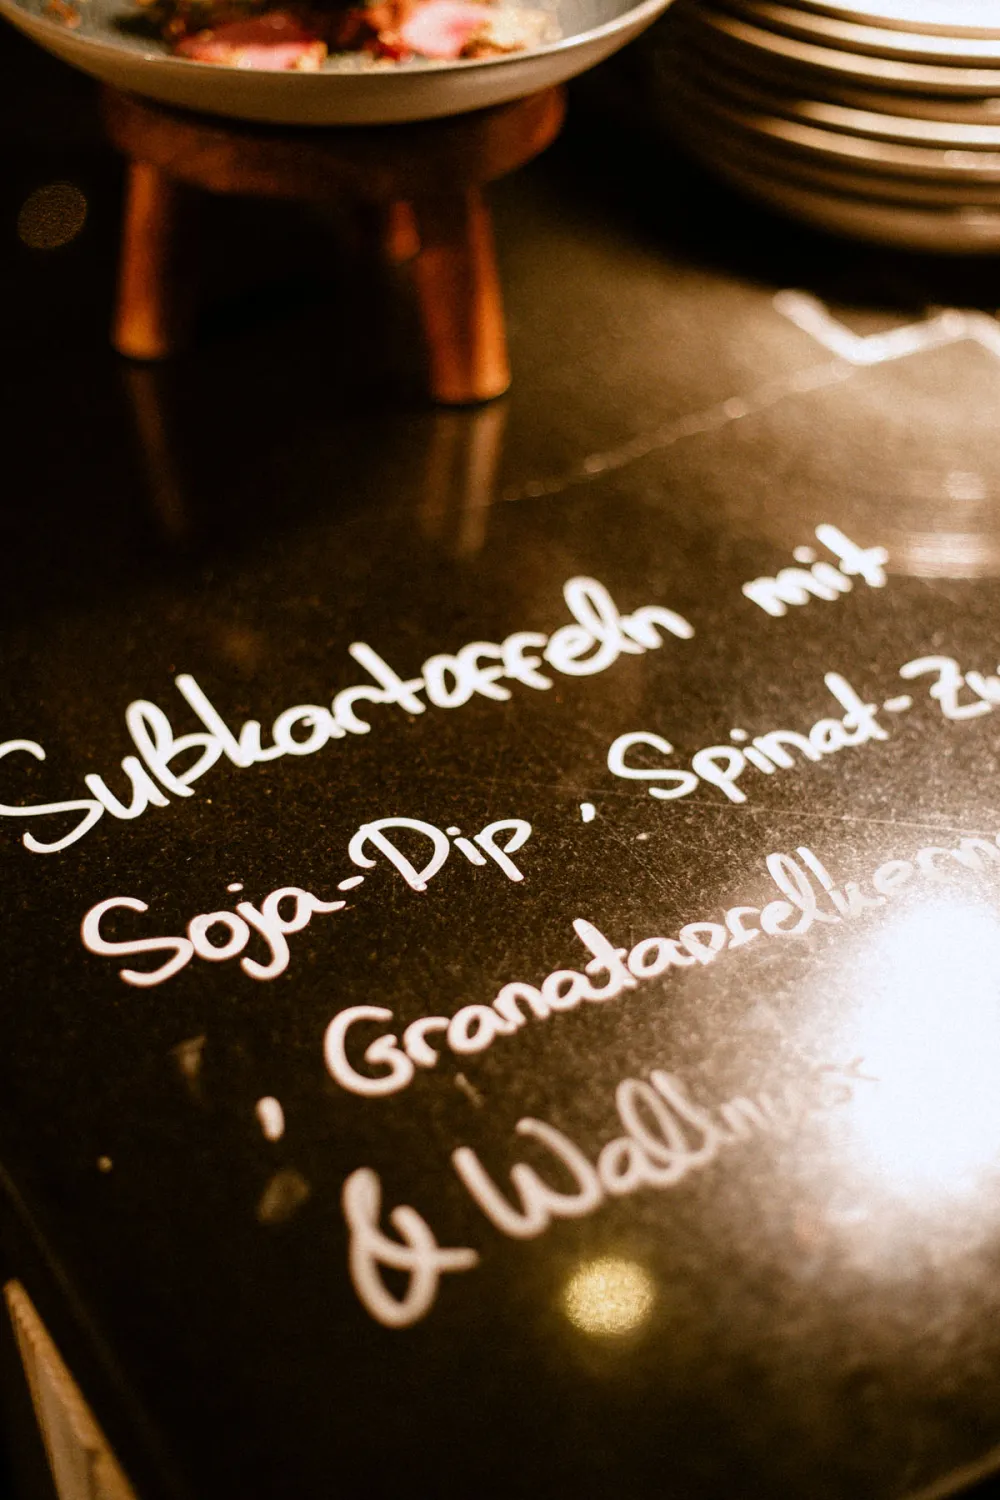 Sußkartoffeln mit
Soja-Dip, Spinat-Zw
, Granatapfelkern
& Wallnuss